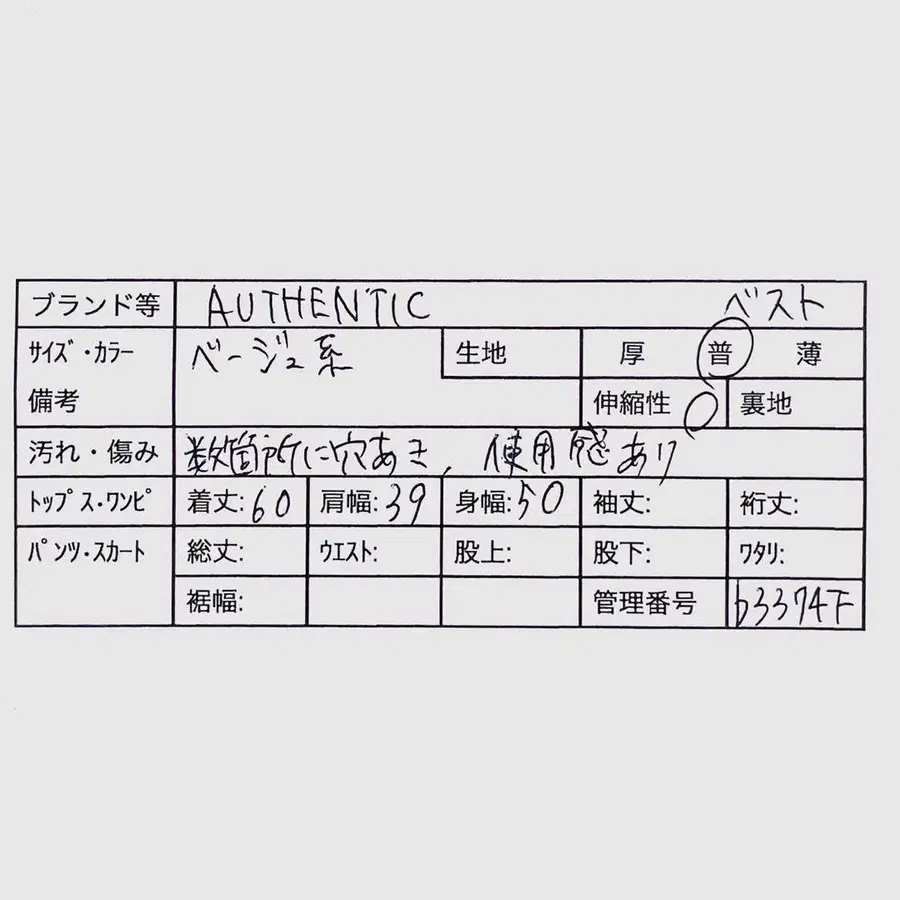 ブランド等 AUTHENTIC ベスト
サイズ・カラー ベージュ系 生地 厚 普 薄
備考 伸縮性 ○ 裏地
汚れ・傷み 数箇所に穴あき、使用感あり
トップス・ワンピ 着丈:60 肩幅:39 身幅:50 袖丈: 裄丈:
パンツ・スカート 総丈: ウエスト: 股上: 股下: ワタリ:
裾幅: 管理番号 b3374F